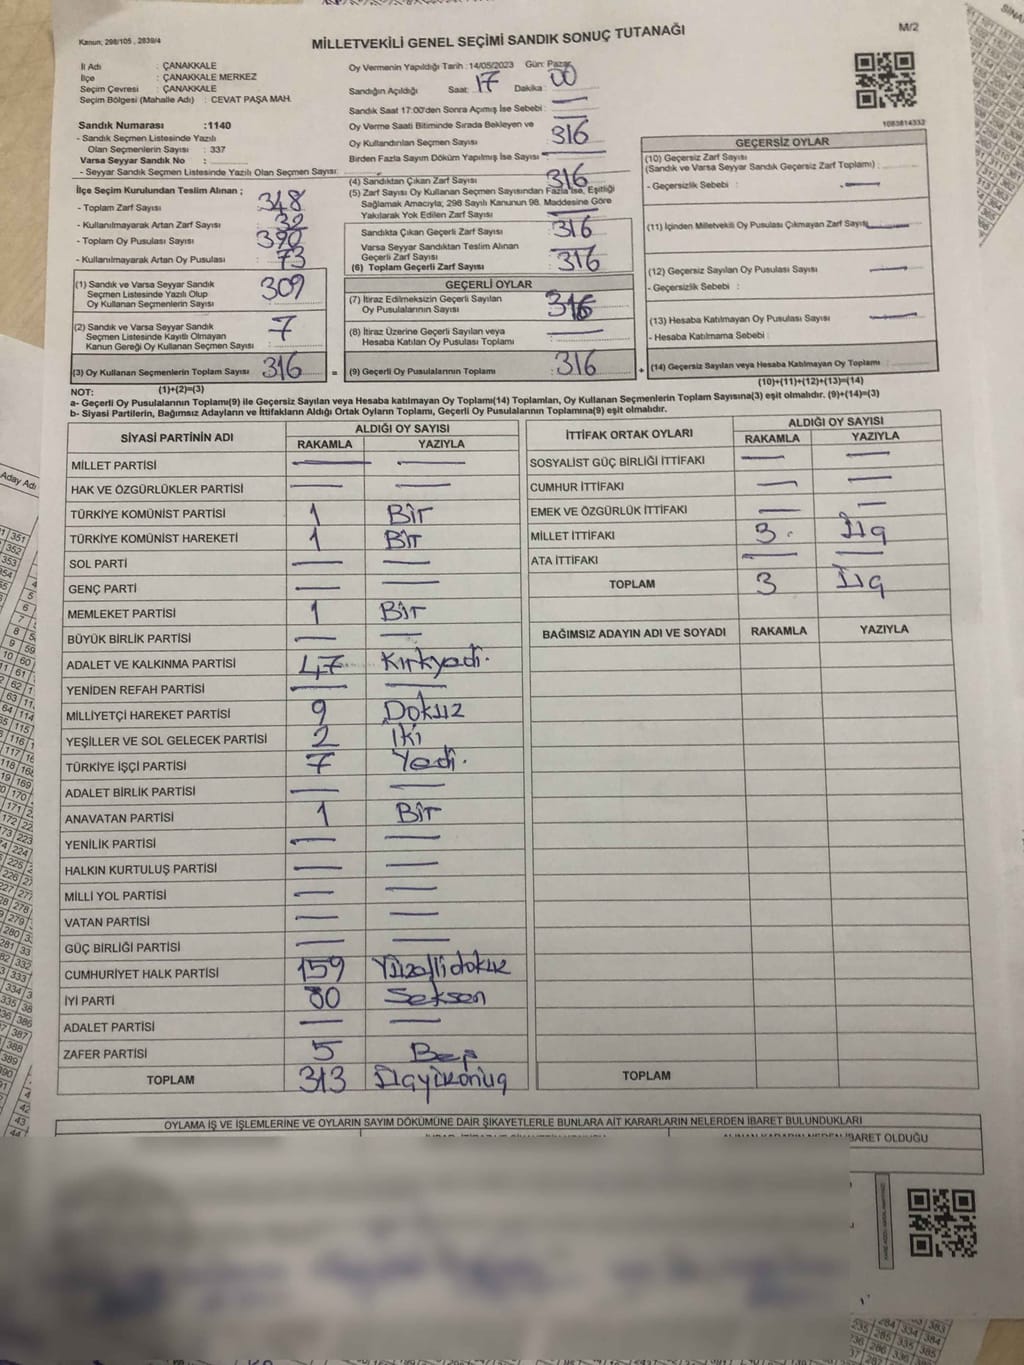 Kanun, 298/105 , 2839/4
MİLLETVEKİLİ GENEL SEÇİMİ SANDIK SONUÇ TUTANAĞI
M/2
İl Adı : ÇANAKKALE
İlçe : ÇANAKKALE MERKEZ
Seçim Çevresi : ÇANAKKALE
Seçim Bölgesi (Mahalle Adı) : CEVAT PAŞA MAH.
Sandık Numarası :1140
- Sandık Seçmen Listesinde Yazılı
Olan Seçmenlerin Sayısı : 337
Varsa Seyyar Sandık No :
- Seyyar Sandık Seçmen Listesinde Yazılı Olan Seçmen Sayısı:
İlçe Seçim Kurulundan Teslim Alınan ;
- Toplam Zarf Sayısı : 348
- Kullanılmayarak Artan Zarf Sayısı : 32
- Toplam Oy Pusulası Sayısı : 390
- Kullanılmayarak Artan Oy Pusulası : 73
(1) Sandık ve Varsa Seyyar Sandık
Seçmen Listesinde Yazılı Olup
Oy Kullanan Seçmenlerin Sayısı : 309
(2) Sandık ve Varsa Seyyar Sandık
Seçmen Listesinde Kayıtlı Olmayan
Kanun Gereği Oy Kullanan Seçmen Sayısı : 7
(3) Oy Kullanan Seçmenlerin Toplam Sayısı : 316
(1)+(2)=(3)
Oy Vermenin Yapıldığı Tarih :14/05/2023 Gün: Pazar
Sandığın Açıldığı Saat: 17 Dakika : 00
Sandık Saat 17:00'den Sonra Açımış İse Sebebi :
Oy Verme Saati Bitiminde Sırada Bekleyen ve
Oy Kullandırılan Seçmen Sayısı : 316
Birden Fazla Sayım Döküm Yapılmış İse Sayısı
(4) Sandıktan Çıkan Zarf Sayısı : 316
(5) Zarf Sayısı Oy Kullanan Seçmen Sayısından Fazla İse, Eşitliği
Sağlamak Amacıyla, 298 Sayılı Kanunun 98. Maddesine Göre
Yakılarak Yok Edilen Zarf Sayısı
Sandıkta Çıkan Geçerli Zarf Sayısı : 316
Varsa Seyyar Sandıktan Teslim Alınan
Geçerli Zarf Sayısı
(6) Toplam Geçerli Zarf Sayısı : 316
GEÇERLİ OYLAR
(7) İtiraz Edilmeksizin Geçerli Sayılan
Oy Pusulalarının Sayısı : 316
(8) İtiraz Üzerine Geçerli Sayılan veya
Hesaba Katılan Oy Pusulası Toplamı :
= (9) Geçerli Oy Pusulalarının Toplamı : 316 +
1083814332
GEÇERSİZ OYLAR
(10) Geçersiz Zarf Sayısı
(Sandık ve Varsa Seyyar Sandık Geçersiz Zarf Toplamı) :
- Geçersizlik Sebebi :
(11) İçinden Milletvekili Oy Pusulası Çıkmayan Zarf Sayısı
(12) Geçersiz Sayılan Oy Pusulası Sayısı
- Geçersizlik Sebebi :
(13) Hesaba Katılmayan Oy Pusulası Sayısı
- Hesaba Katılmama Sebebi :
(14) Geçersiz Sayılan veya Hesaba Katılmayan Oy Toplamı :
(10)+(11)+(12)+(13)=(14)
NOT:
a- Geçerli Oy Pusulalarının Toplamı(9) ile Geçersiz Sayılan veya Hesaba katılmayan Oy Toplamı(14) Toplamları, Oy Kullanan Seçmenlerin Toplam Sayısına(3) eşit olmalıdır. (9)+(14)=(3)
b- Siyasi Partilerin, Bağımsız Adayların ve İttifakların Aldığı Ortak Oyların Toplamı, Geçerli Oy Pusulalarının Toplamına(9) eşit olmalıdır.
SİYASİ PARTİNİN ADI ALDIĞI OY SAYISI
RAKAMLA YAZIYLA
MİLLET PARTİSİ
HAK VE ÖZGÜRLÜKLER PARTİSİ
TÜRKİYE KOMÜNİST PARTİSİ 1 Bir
TÜRKİYE KOMÜNİST HAREKETİ 1 Bir
SOL PARTİ
GENÇ PARTİ
MEMLEKET PARTİSİ 1 Bir
BÜYÜK BİRLİK PARTİSİ
ADALET VE KALKINMA PARTİSİ 47 Kırkyedi.
YENİDEN REFAH PARTİSİ
MİLLİYETÇİ HAREKET PARTİSİ 9 Dokuz
YEŞİLLER VE SOL GELECEK PARTİSİ 2 İki
TÜRKİYE İŞÇİ PARTİSİ 7 Yedi.
ADALET BİRLİK PARTİSİ
ANAVATAN PARTİSİ 1 Bir
YENİLİK PARTİSİ
HALKIN KURTULUŞ PARTİSİ
MİLLİ YOL PARTİSİ
VATAN PARTİSİ
GÜÇ BİRLİĞİ PARTİSİ
CUMHURİYET HALK PARTİSİ 159 Yüzellidokuz
İYİ PARTİ 80 Seksen
ADALET PARTİSİ
ZAFER PARTİSİ 5 Beş
TOPLAM 313 Üçyüzonüç
İTTİFAK ORTAK OYLARI ALDIĞI OY SAYISI
RAKAMLA YAZIYLA
SOSYALİST GÜÇ BİRLİĞİ İTTİFAKI
CUMHUR İTTİFAKI
EMEK VE ÖZGÜRLÜK İTTİFAKI
MİLLET İTTİFAKI 3 Üç
ATA İTTİFAKI
TOPLAM 3 Üç
BAĞIMSIZ ADAYIN ADI VE SOYADI RAKAMLA YAZIYLA
TOPLAM
OYLAMA İŞ VE İŞLEMLERİNE VE OYLARIN SAYIM DÖKÜMÜNE DAİR ŞİKAYETLERLE BUNLARA AİT KARARLARIN NELERDEN İBARET BULUNDUKLARI
İBARET OLDUĞU